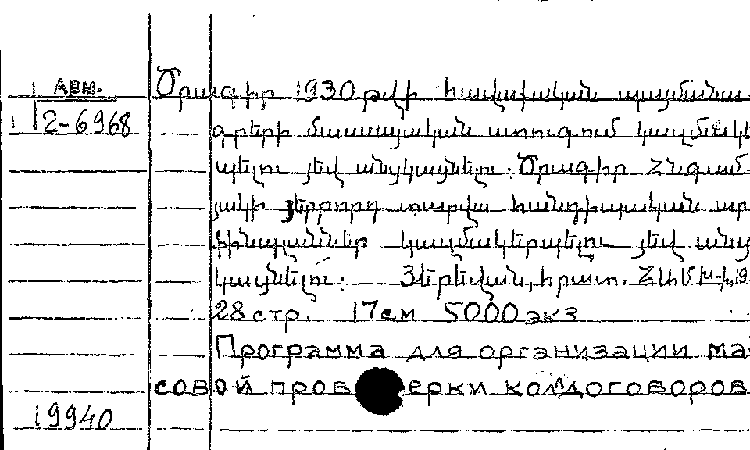 АВН.
2-6968
Ծրագիր 1930 թվի հավաքական պայմանա
գրերի մասսայական ստուգում կազմակե
պելու յեվ անցկացնելու: Ծրագիր
յակի յերրորդ տարվա
կազմակերպելու յեվ անց
կացնելու: Յերեվան, հրատ.
28 стр. 17 см 5000 экз
Программа для организации ма
совой проверки колдоговоров
19940